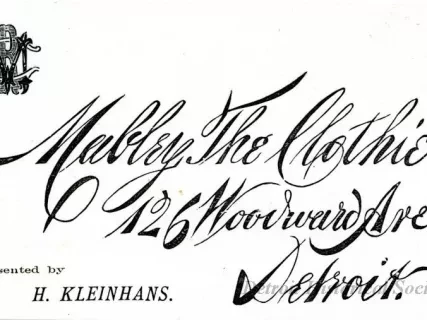 Mabley, The Clothie
126 Woodward Ave
Detroit.
esented by
H. KLEINHANS.
Detroit Historical Soci